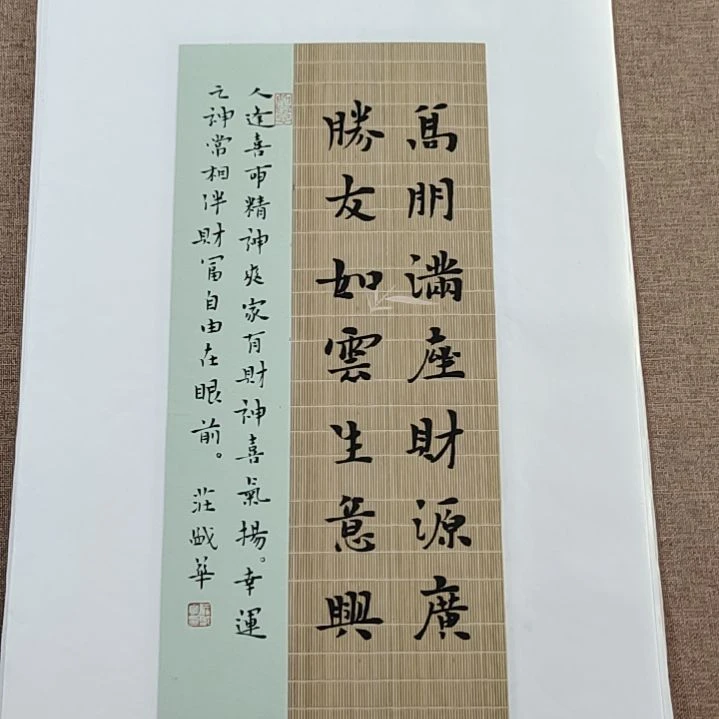 高朋滿座財源廣
勝友如雲生意興
人逢喜事精神爽家有財神喜氣揚。幸運
之神常相伴財富自由在眼前。 莊華